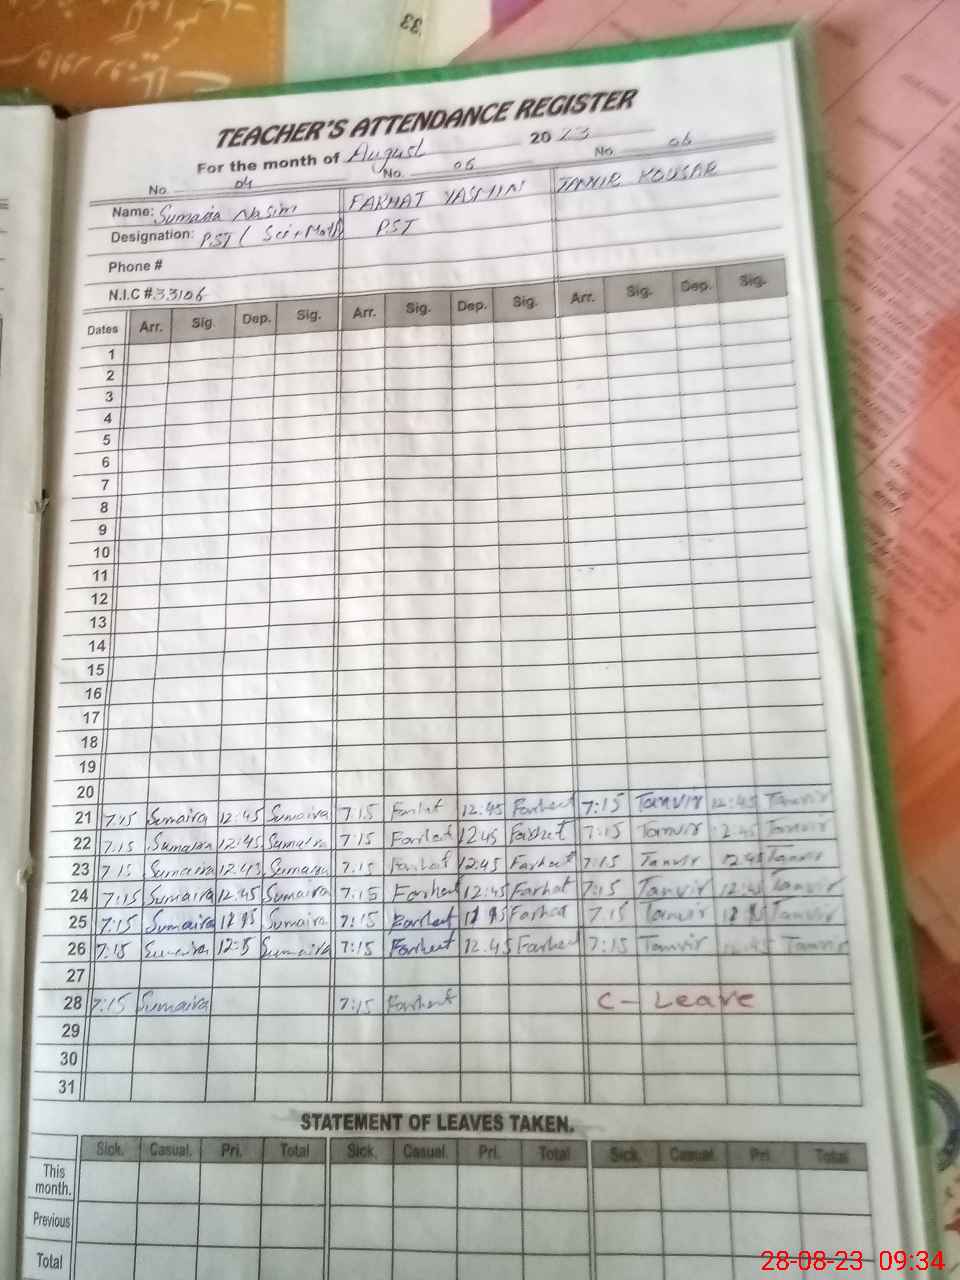 TEACHER'S ATTENDANCE REGISTER
For the month of August 2023
No. 04 No. 05 No. 06
Name: Sumaira Nasim FARHAT YASMIN TANVIR KOUSAR
Designation: PST ( Sci+Math) PST
Phone #
N.I.C # 33106
Dates Arr. Sig. Dep. Sig. Arr. Sig. Dep. Sig. Arr. Sig. Dep. Sig.
1
2
3
4
5
6
7
8
9
10
11
12
13
14
15
16
17
18
19
20
21 7:15 Sumaira 12:45 Sumaira 7:15 Farhat 12:45 Farhat 7:15 Tanvir 12:45 Tanvir
22 7:15 Sumaira 12:45 Sumaira 7:15 Farhat 12:45 Farhat 7:15 Tanvir 12:45 Tanvir
23 7:15 Sumaira 12:45 Sumaira 7:15 Farhat 12:45 Farhat 7:15 Tanvir 12:45 Tanvir
24 7:15 Sumaira 12:45 Sumaira 7:15 Farhat 12:45 Farhat 7:15 Tanvir 12:45 Tanvir
25 7:15 Sumaira Sumaira 7:15 Farhat Farhat 7:15 Tanvir Tanvir
26 7:15 Sumaira Sumaira 7:15 Farhat 12:45 Farhat 7:15 Tanvir 12:45 Tanvir
27
28 7:15 Sumaira 7:15 Farhat C - Leave
29
30
31
STATEMENT OF LEAVES TAKEN.
Sick. Casual. Pri. Total Sick. Casual. Pri. Total Sick. Casual. Pri. Total
This month.
Previous
Total
28-08-23 09:34